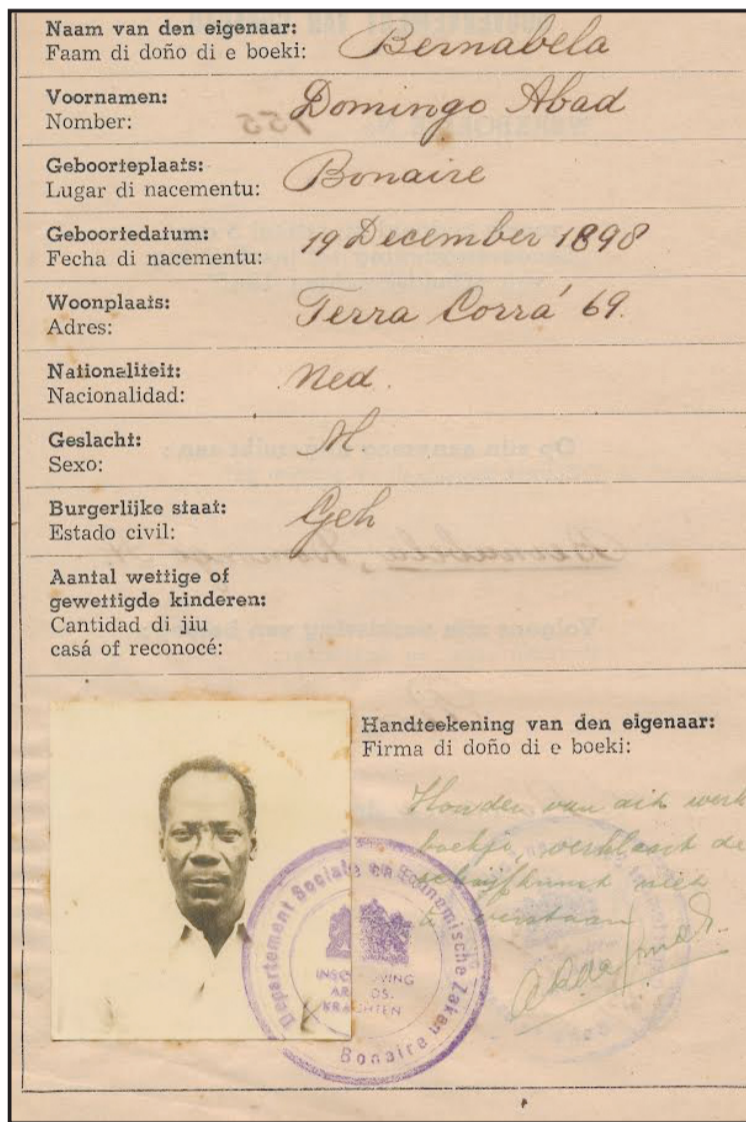 Naam van den eigenaar: Bernabela
Faam di doño di e boeki:
Voornamen: Domingo Abad
Nomber:
Geboorteplaats: Bonaire
Lugar di nacementu:
Geboortedatum: 19 December 1898
Fecha di nacementu:
Woonplaats: Terra Corrá 69.
Adres:
Nationaliteit: Ned.
Nacionalidad:
Geslacht: M
Sexo:
Burgerlijke staat: Geh
Estado civil:
Aantal wettige of
gewettigde kinderen:
Cantidad di jiu
casá of reconocé:
Handteekening van den eigenaar:
Firma di doño di e boeki:
Houder van dit werk
boekje, verklaart de
schrijfkunst niet
te verstaan
Departement Sociale en Economische Zaken
INSCHRIJVING
ARBEIDS.
KRACHTEN
Bonaire